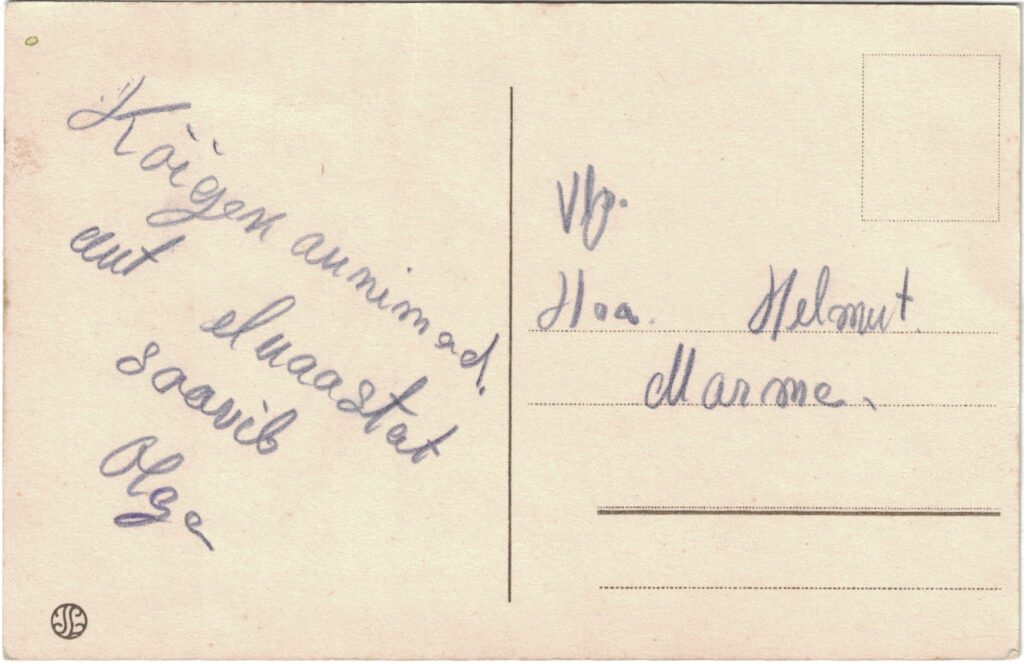 Kõigen annimad.
aut elnaastat
soovib
Olga
Vlp.
Hra. Helmut.
Marme.